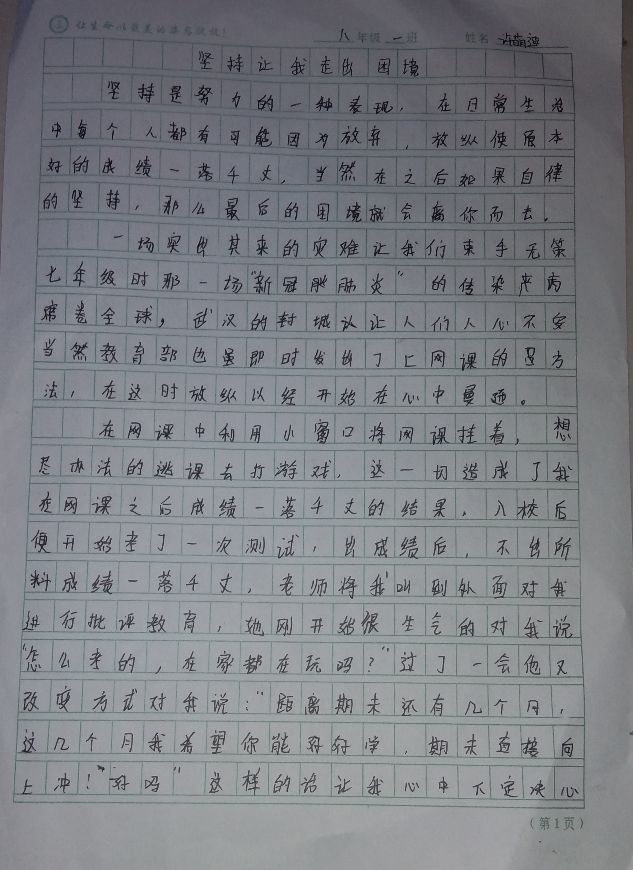 让生命以最美的姿态绽放!
八年级一班 姓名
坚持让我走出困境
坚持是努力的一种表现，在日常生活
中每个人都有可能因为放弃，放纵使原本
好的成绩一落千丈 当然在之后如果自律
的坚持，那么最后的困境就会离你而去。
一场突出其来的灾难让我们束手无策
七年级时那一场"新冠肺炎"的传染严病
席卷全球，武汉的封城让人们人心不安
当然教育部也虽即时发出了上网课的方
法，在这时放纵以经开始在心中蔓延。
在网课中利用小窗口将网课挂着，想
尽办法的逃课去打游戏，这一切造成了我
在网课之后成绩一落千丈的结果，入校后
便开始考了一次测试，出成绩后，不出所
料成绩一落千丈，老师将我叫到外面对我
进行批评教育，她刚开始很生气的对我说
"怎么考的，在家都在玩吗？"过了一会他又
改变方式对我说："距离期末还有几个月，
这几个月我希望你能好好学，期末直接向
上冲！好吗"这样的话让我心中下定决心
（第1页）